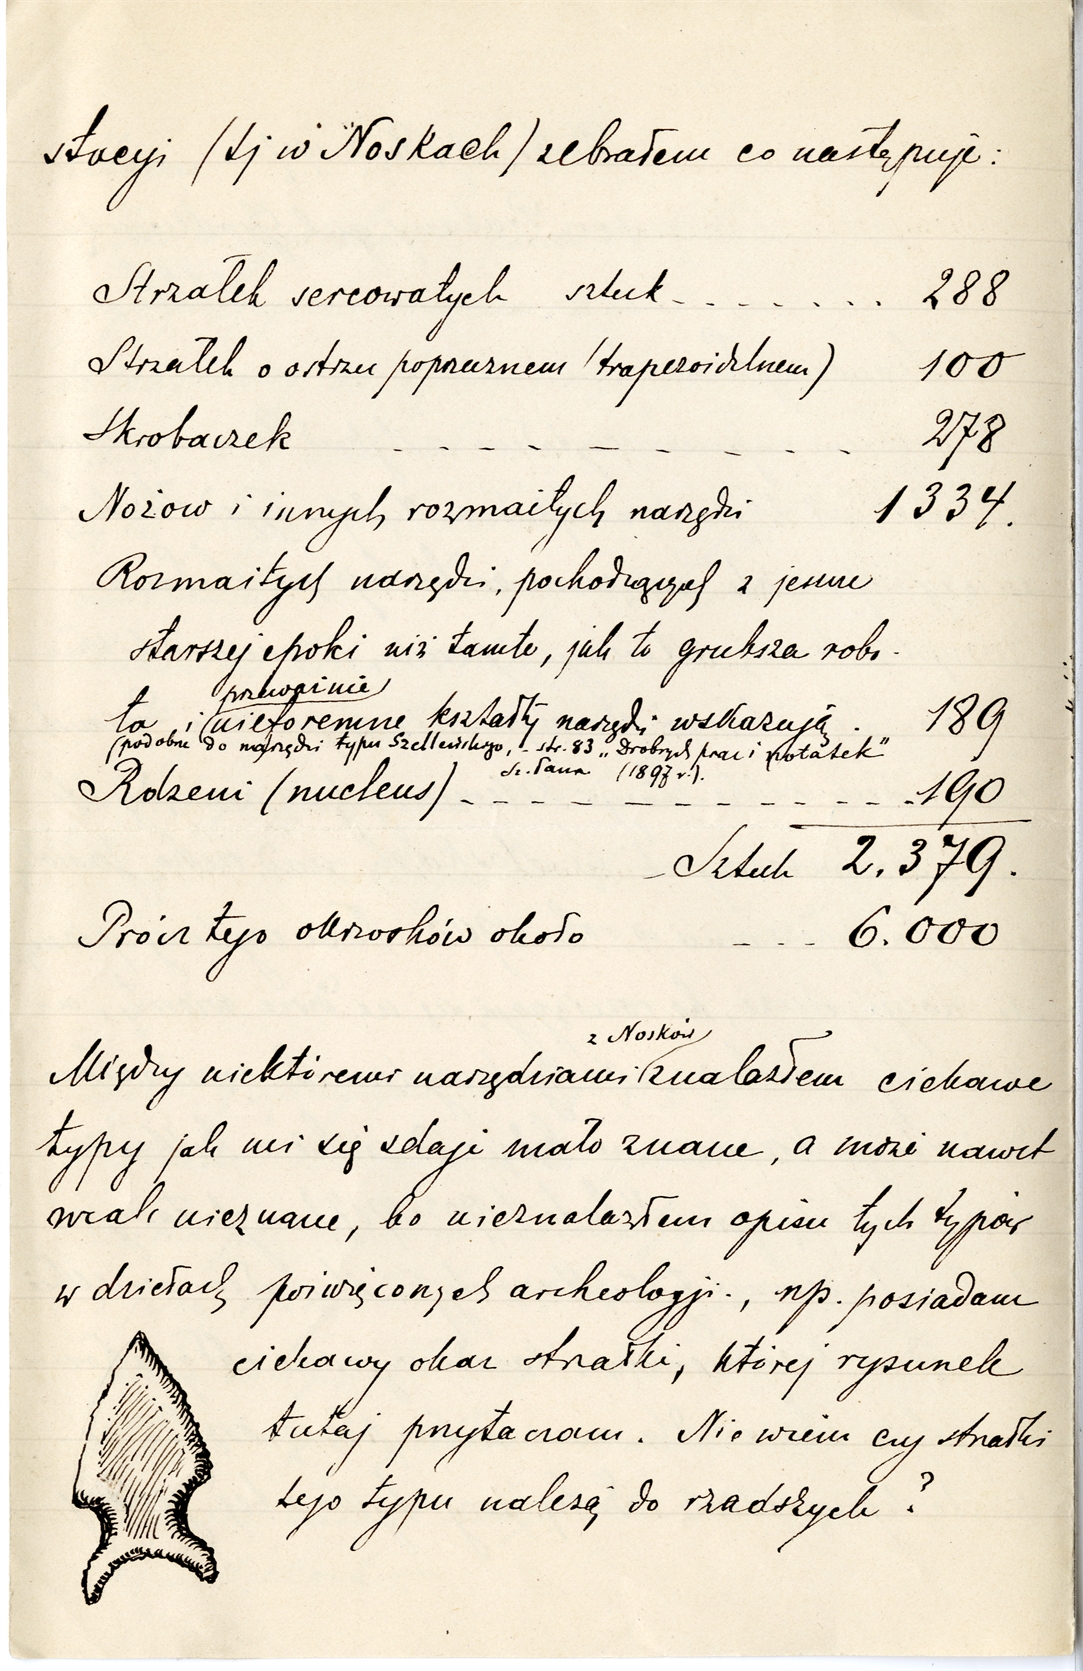 stacyi (tj w Noskach) zebrałem co następuje:
Strzałek sercowatych sztuk - - - - - - - 288
Strzałek o ostrzu poprzecznem (trapezoidalnem) 100
Skrobaczek - - - - - - - - 278
Nożow i innych rozmaitych narzędzi 1334.
Rozmaitych narzędzi, pochodzących z jeszcze
starszej epoki niż tamte, jak to grubsza robo-
przeważnie
ta i nieforemne kształty narzędzi wskazują . 189
(podobne do narzędzi typu Szellewskiego, - str. 83 „Drobnych prac i notatek"
(1897 r.).
Rdzeni (nucleus) - - - - - - - - - - - - 190
Sztuk 2.379.
Prócz tego okrzosków około - - - 6.000
z Nosków
Między niektóremi narzędziami znalazłem ciekawe
typy jak mi się zdaje mało znane, a może nawet
wcale nieznane, bo nieznalazłem opisu tych typów
w dziełach poświęconych archeologji., np. posiadam
ciekawy okaz strzałki, której rysunek
tutaj przytaczam. Nie wiem czy strzałki
tego typu należą do rzadszych?